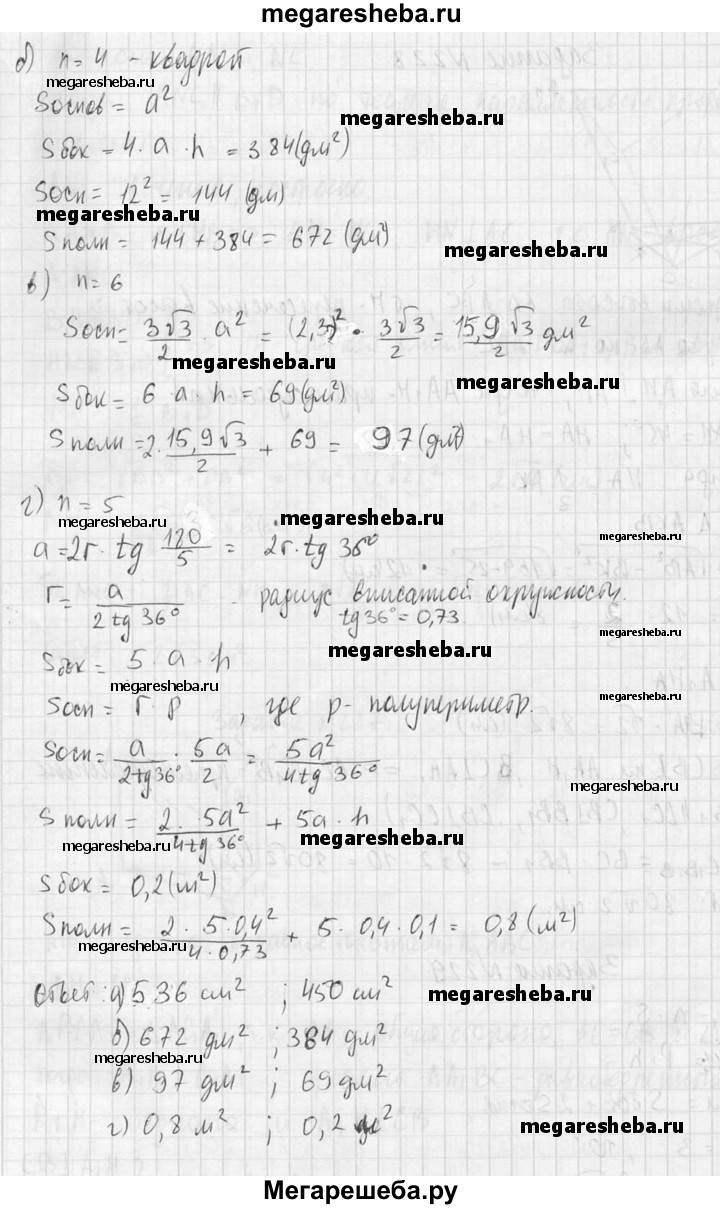 megaresheba.ru
б) n = 4 - квадрат
megaresheba.ru
Sоснов = a²
megaresheba.ru
Sбок = 4 · a · h = 384 (дм²)
Sосн = 12² = 144 (дм)
megaresheba.ru
Sполн = 144 + 384 = 672 (дм²)
megaresheba.ru
в) n = 6
Sосн = 3√3/2 · a² = (2,3)² · 3√3/2 = 15,9√3/2 дм²
megaresheba.ru
megaresheba.ru
Sбок = 6 · a · h = 69 (дм²)
Sполн = 2 · 15,9√3/2 + 69 = 97 (дм²)
г) n = 5
megaresheba.ru
megaresheba.ru
megaresheba.ru
a = 2r · tg 120/5 = 2r · tg 36°
r = a/2tg36° - радиус вписанной окружности.
tg36° = 0,73
megaresheba.ru
megaresheba.ru
Sбок = 5 · a · h
megaresheba.ru
megaresheba.ru
Sосн = r · p , где p - полупериметр.
Sосн = a/2tg36° · 5a/2 = 5a²/4tg36°
megaresheba.ru
Sполн = 2 · 5a²/4tg36° + 5a · h
megaresheba.ru
megaresheba.ru
Sбок = 0,2 (м²)
Sполн = 2 · 5 · 0,4²/4 · 0,73 + 5 · 0,4 · 0,1 = 0,8 (м²)
megaresheba.ru
Ответ: а) 536 см² ; 450 см²
megaresheba.ru
б) 672 дм² ; 384 дм²
megaresheba.ru
в) 97 дм² ; 69 дм²
г) 0,8 м² ; 0,2 м²
megaresheba.ru
Мегарешеба.ру